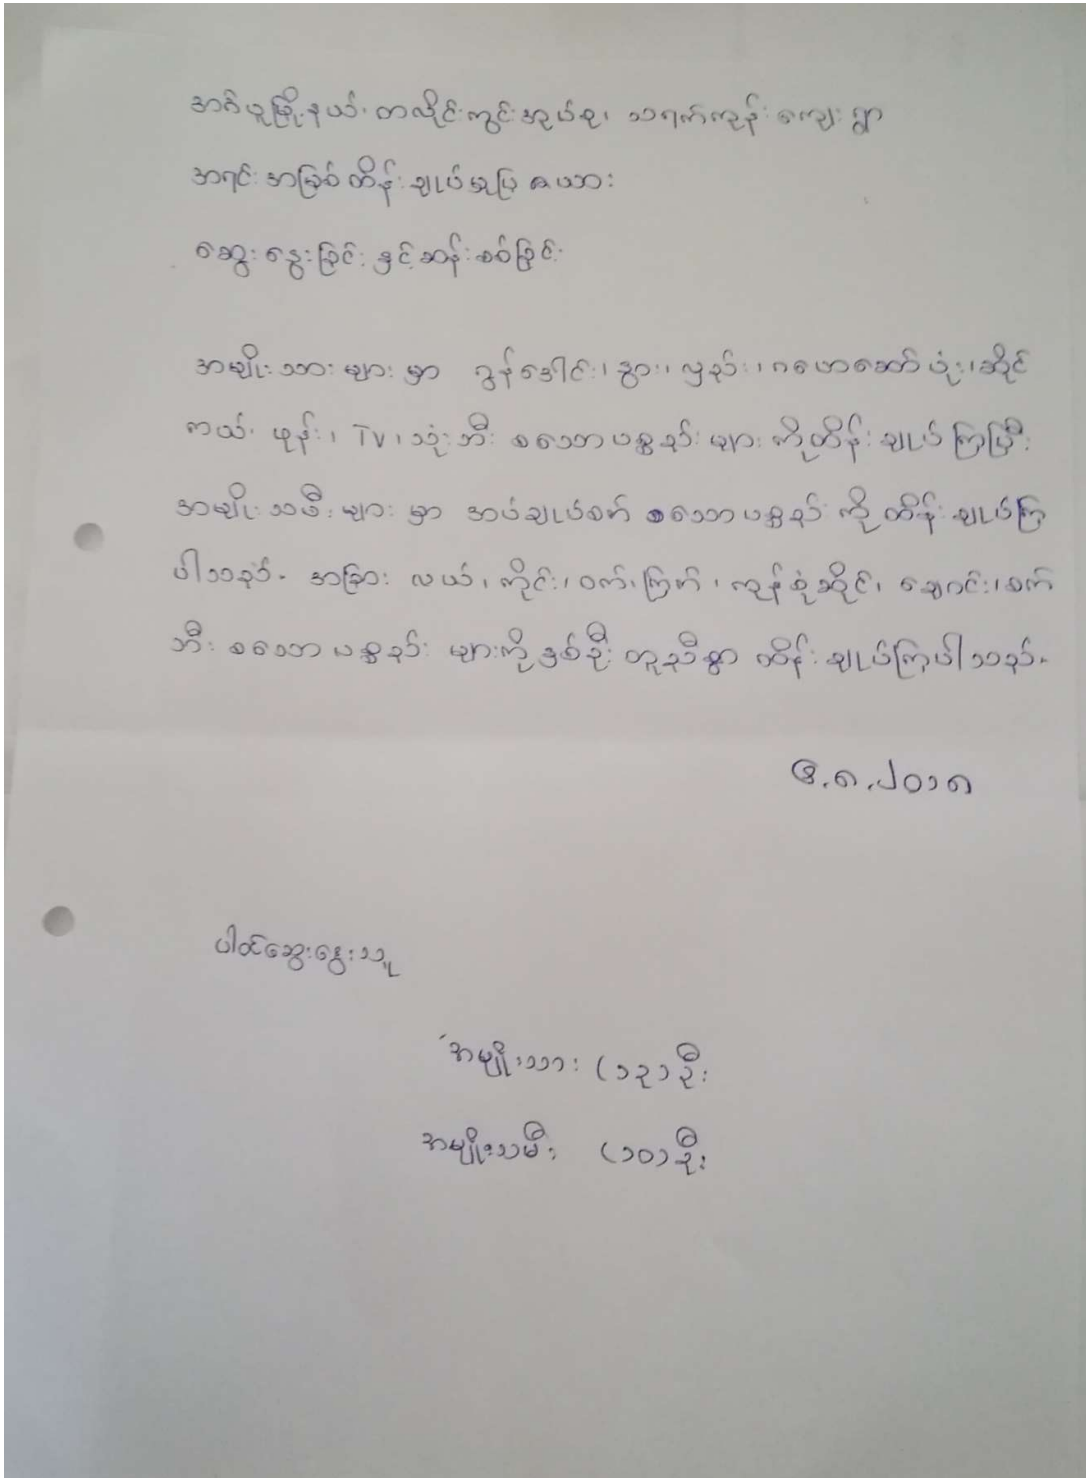 အင်ပူမြို့နယ်၊ တလိုင်းကွင်းအုပ်စု၊ သရက်ကုန်းကျေးရွာ
အရင်းအမြစ်ထိန်းချုပ်မှုပြဇယား
ဆွေးနွေးခြင်းနှင့်ဆန်းစစ်ခြင်း
အမျိုးသားများမှာ ဂွန်ဒေါင်း၊ နွား၊ လှည်း၊ ဂဟေဆော်ပုံး၊ ဆိုင်
ကယ်၊ ဖုန်း၊ TV၊ သုံးဘီး စသောပစ္စည်းများကိုထိန်းချုပ်ကြပြီး
အမျိုးသမီးများမှာ အပ်ချုပ်စက် စသောပစ္စည်းကိုထိန်းချုပ်ကြ
ပါသည်။ အခြား လယ်၊ ကိုင်း၊ ဝက်၊ ကြက်၊ ကုန်စုံဆိုင်၊ ချေဂင်း၊ စက်
ဘီး စသောပစ္စည်းများကိုနှစ်ဦးတူညီစွာ ထိန်းချုပ်ကြပါသည်။
၆.၈.၂၀၁၈
ပါဝင်ဆွေးနွေးသူ
အမျိုးသား (၁၃) ဦး
အမျိုးသမီး (၁၀) ဦး